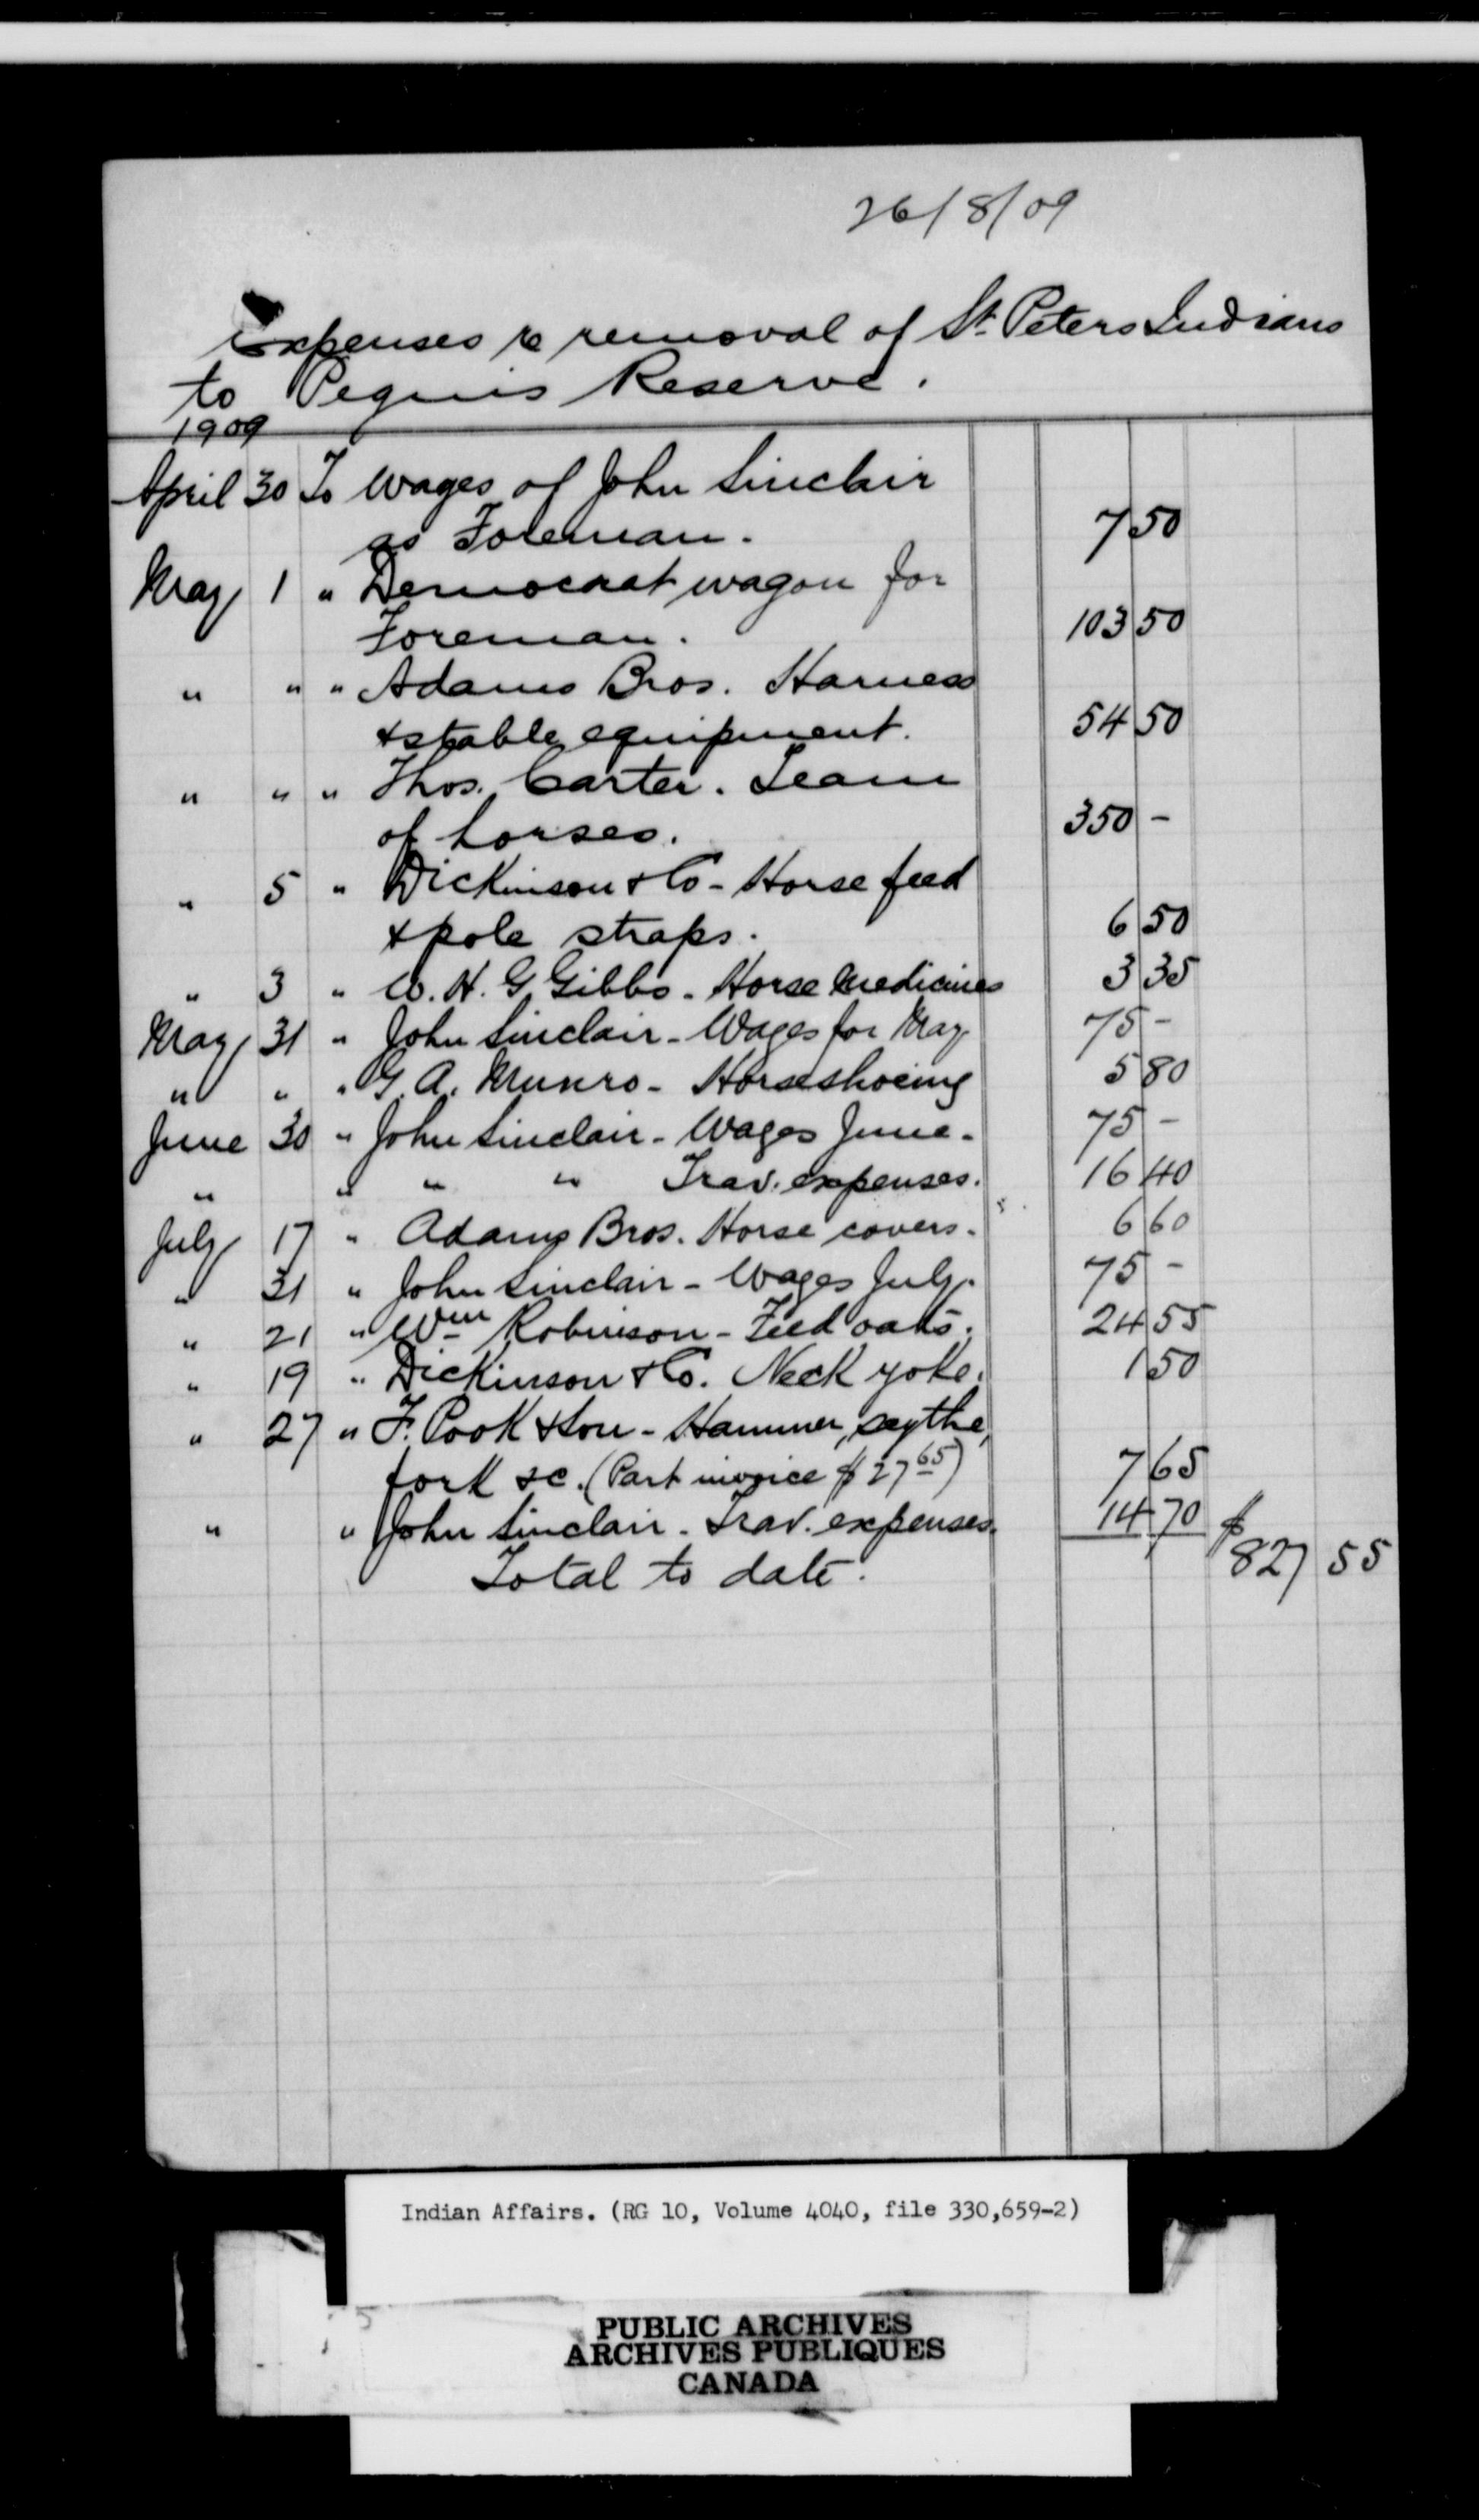 26/8/09
Expenses re removal of St. Peters Indians
to Peguis Reserve.
1909
April 30 To Wages of John Sinclair
as Foreman. 7 50
May 1 " Democrat wagon for
Foreman. 103 50
" " " Adams Bros. Harness
& stable equipment. 54 50
" " " Thos. Carter. Team
of horses. 350 -
" 5 " Dickinson & Co - Horse feed
& pole straps. 6 50
" 3 " W. H. G. Gibbs - Horse Medicines 3 35
May 31 " John Sinclair - Wages for May 75 -
" " " G. A. Munro - Horseshoeing 5 80
June 30 " John Sinclair - Wages June. 75 -
" " " " Trav. expenses. 16 40
July 17 " Adams Bros. Horse covers. 6 60
" 31 " John Sinclair - Wages July. 75 -
" 21 " Wm Robinson - Feed oats. 24 55
" 19 " Dickinson & Co. Neck yoke. 1 50
" 27 " F. Pook & Son - Hammer, scythe,
fork &c. (Part invoice $27 65) 7 65
" " John Sinclair - Trav. expenses. 14 70
Total to date. $827 55
Indian Affairs. (RG 10, Volume 4040, file 330,659-2)
PUBLIC ARCHIVES
ARCHIVES PUBLIQUES
CANADA